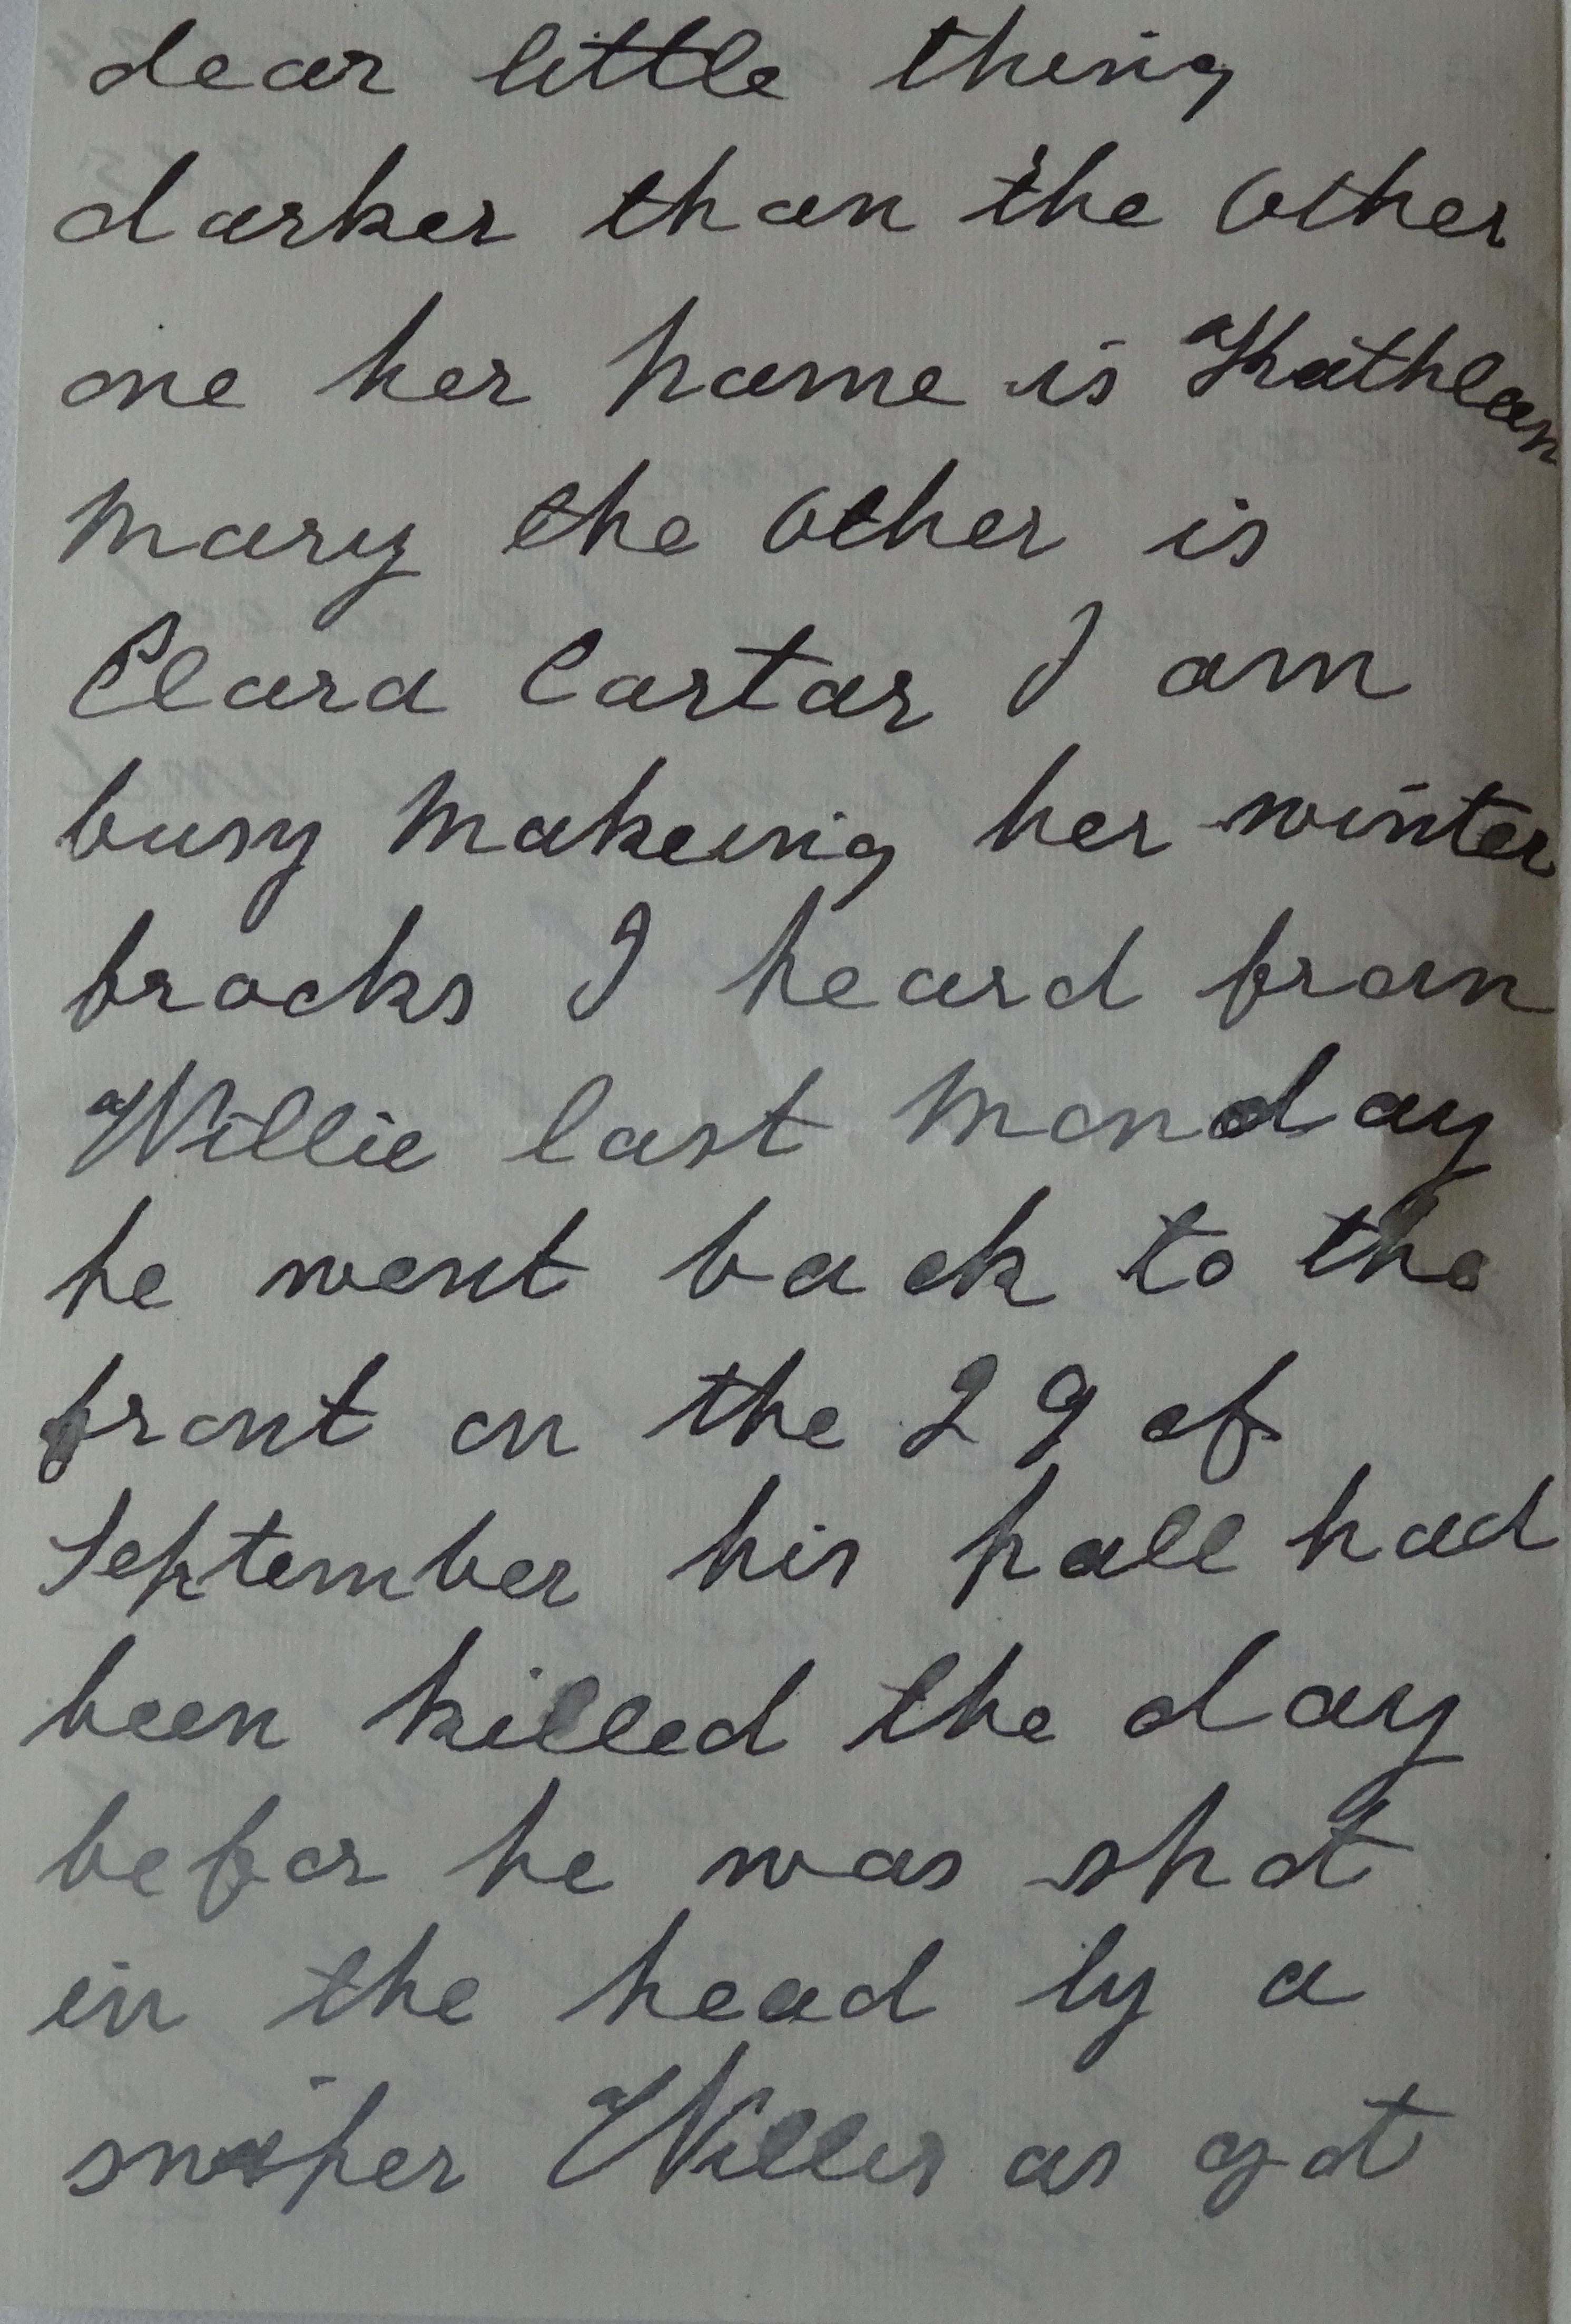 dear little thing
darker than the other
one her name is Kathlean
Mary the other is
Clara Cartar I am
busy makeing her winter
frocks I heard from
Willie last Monday
he went back to the
front on the 29 of
September his pall had
been killed the day
befor he was shot
in the head by a
sniper Willis as got